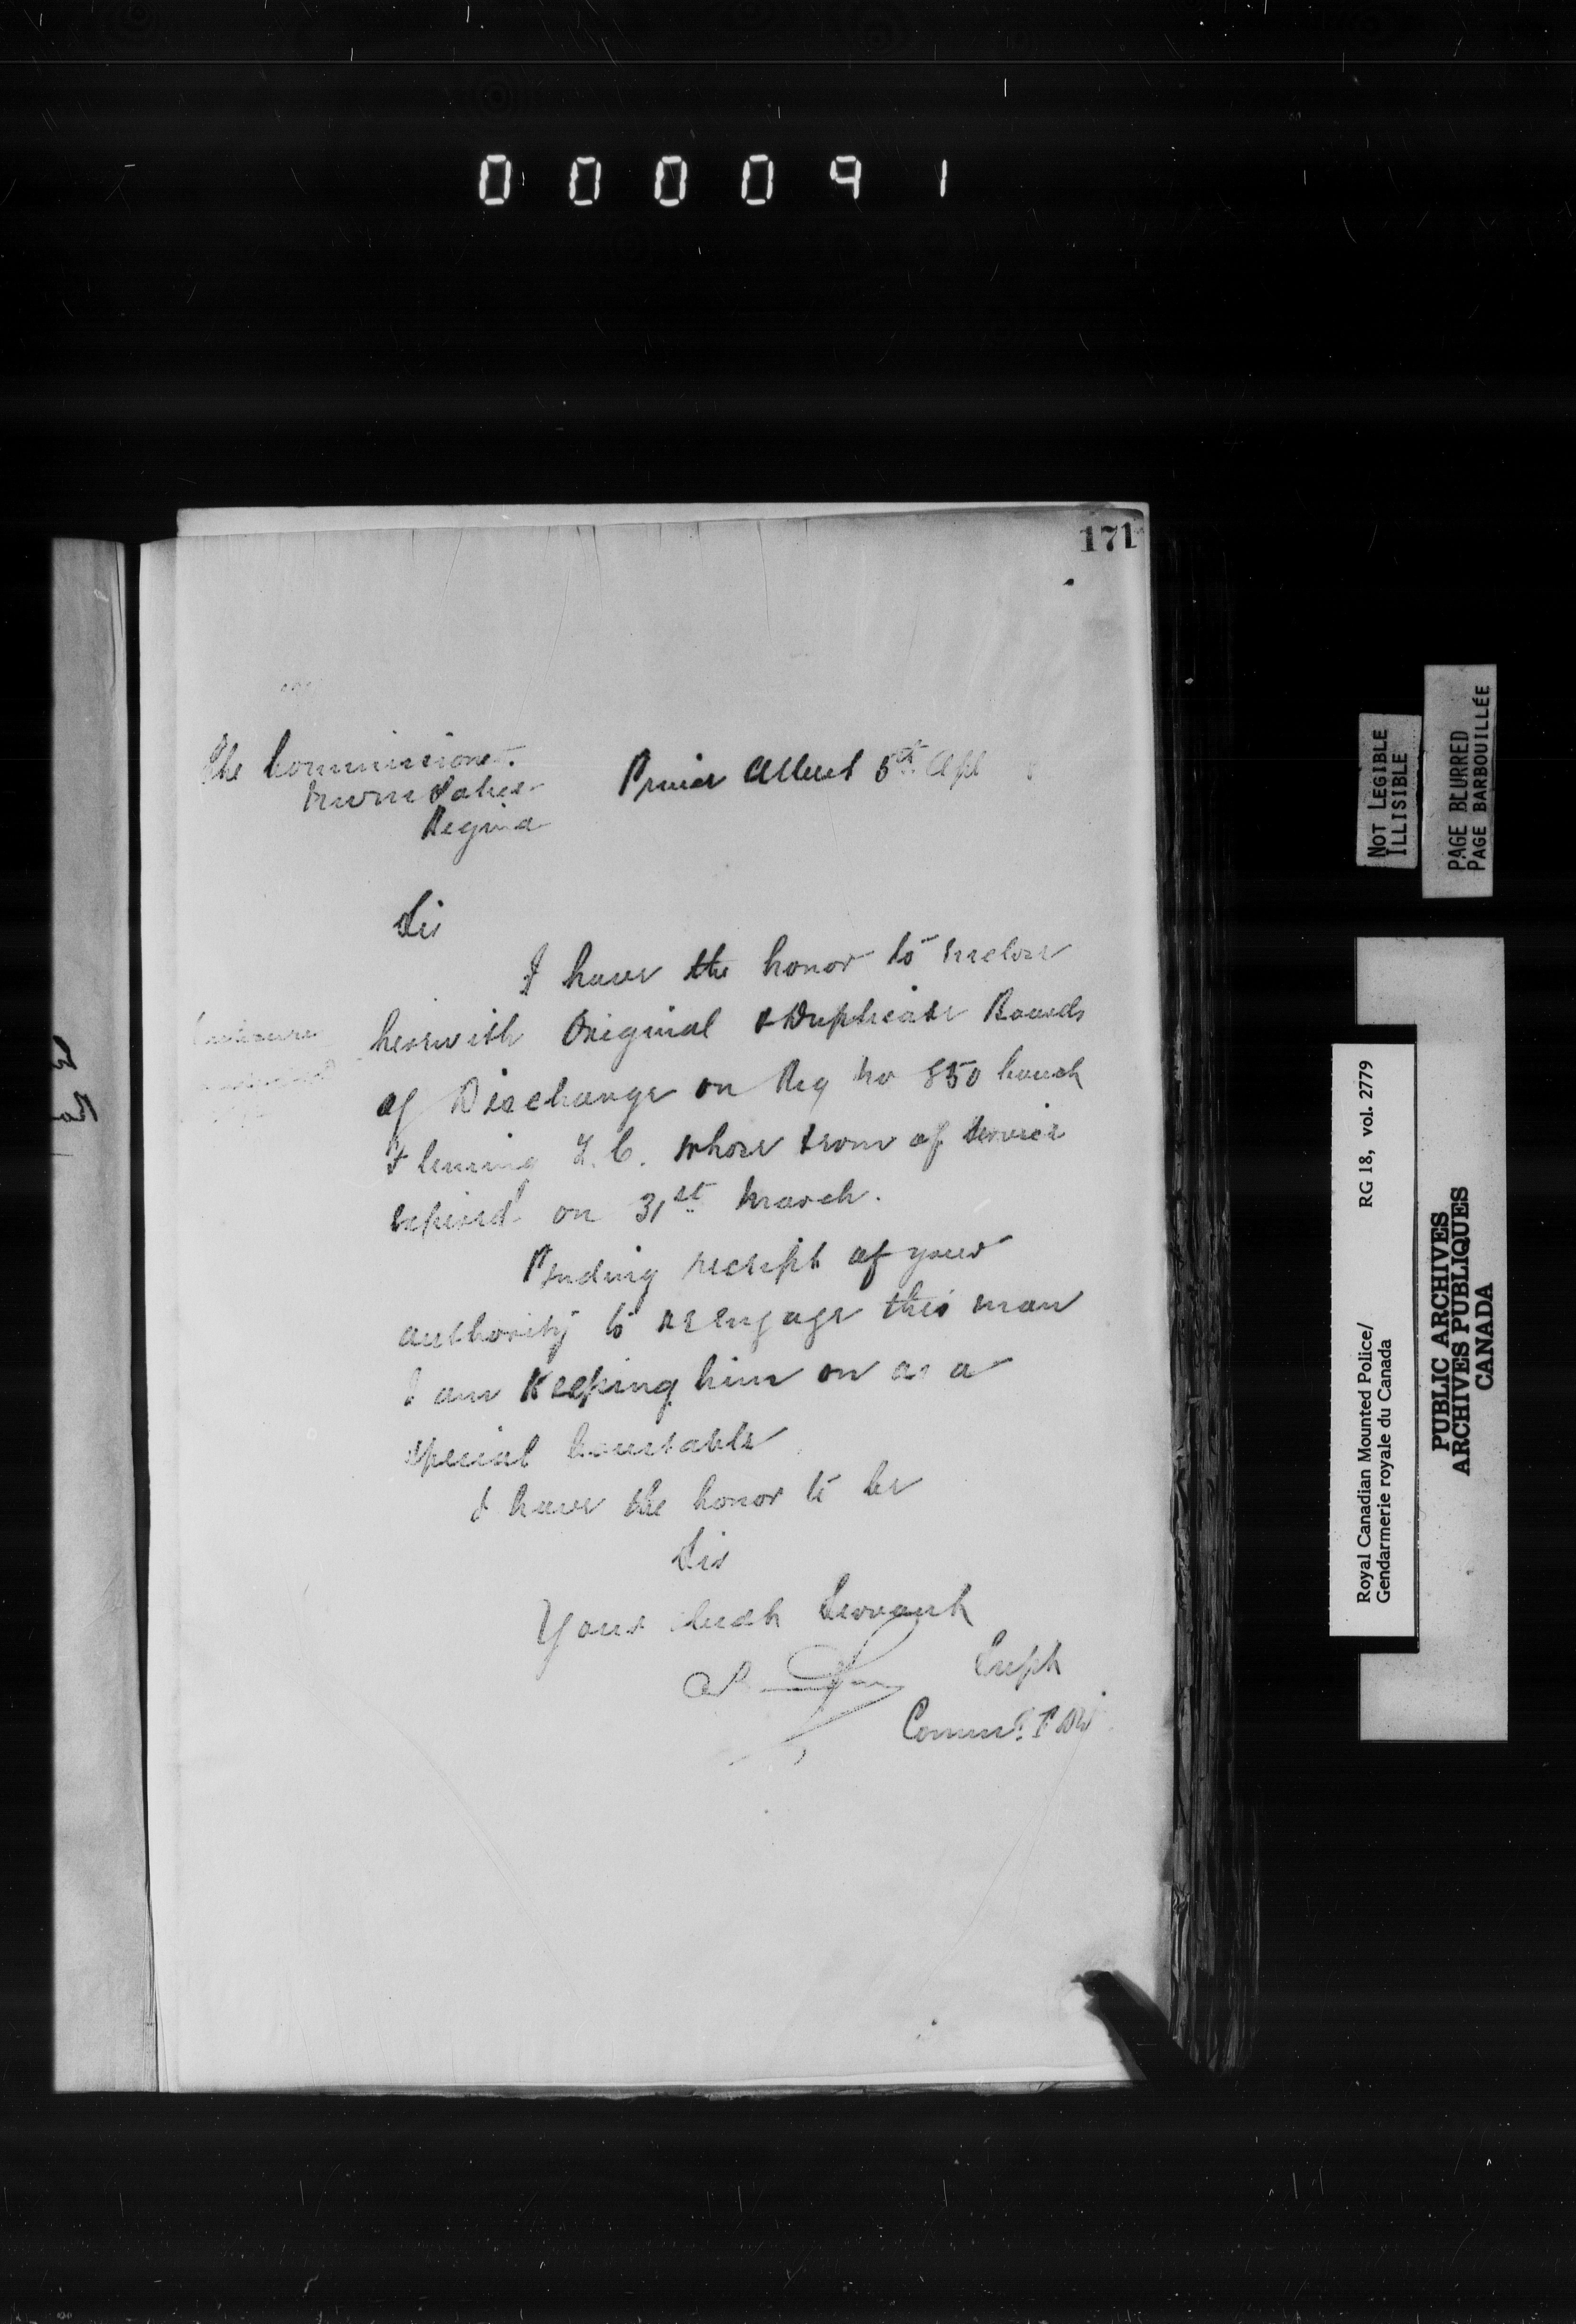 000091
171
The Commissioner
N.W.M. Police
Regina
Prince Albert 5th Apl
Sir
I have the honor to enclose
herewith Original & Duplicate Boards
of Discharge on Reg No 850 Const
Fleming F.C. whose term of service
expired on 31st March.
Pending receipt of your
authority to reengage this man
I am Keeping him on as a
special Constable
I have the honor to be
Sir
Your Obedt Servant
Supt
Commdg F Div
Enclosure
NOT LEGIBLE
ILLISIBLE
PAGE BLURRED
PAGE BARBOUILLÉE
Royal Canadian Mounted Police/ RG 18, vol. 2779
Gendarmerie royale du Canada
PUBLIC ARCHIVES
ARCHIVES PUBLIQUES
CANADA